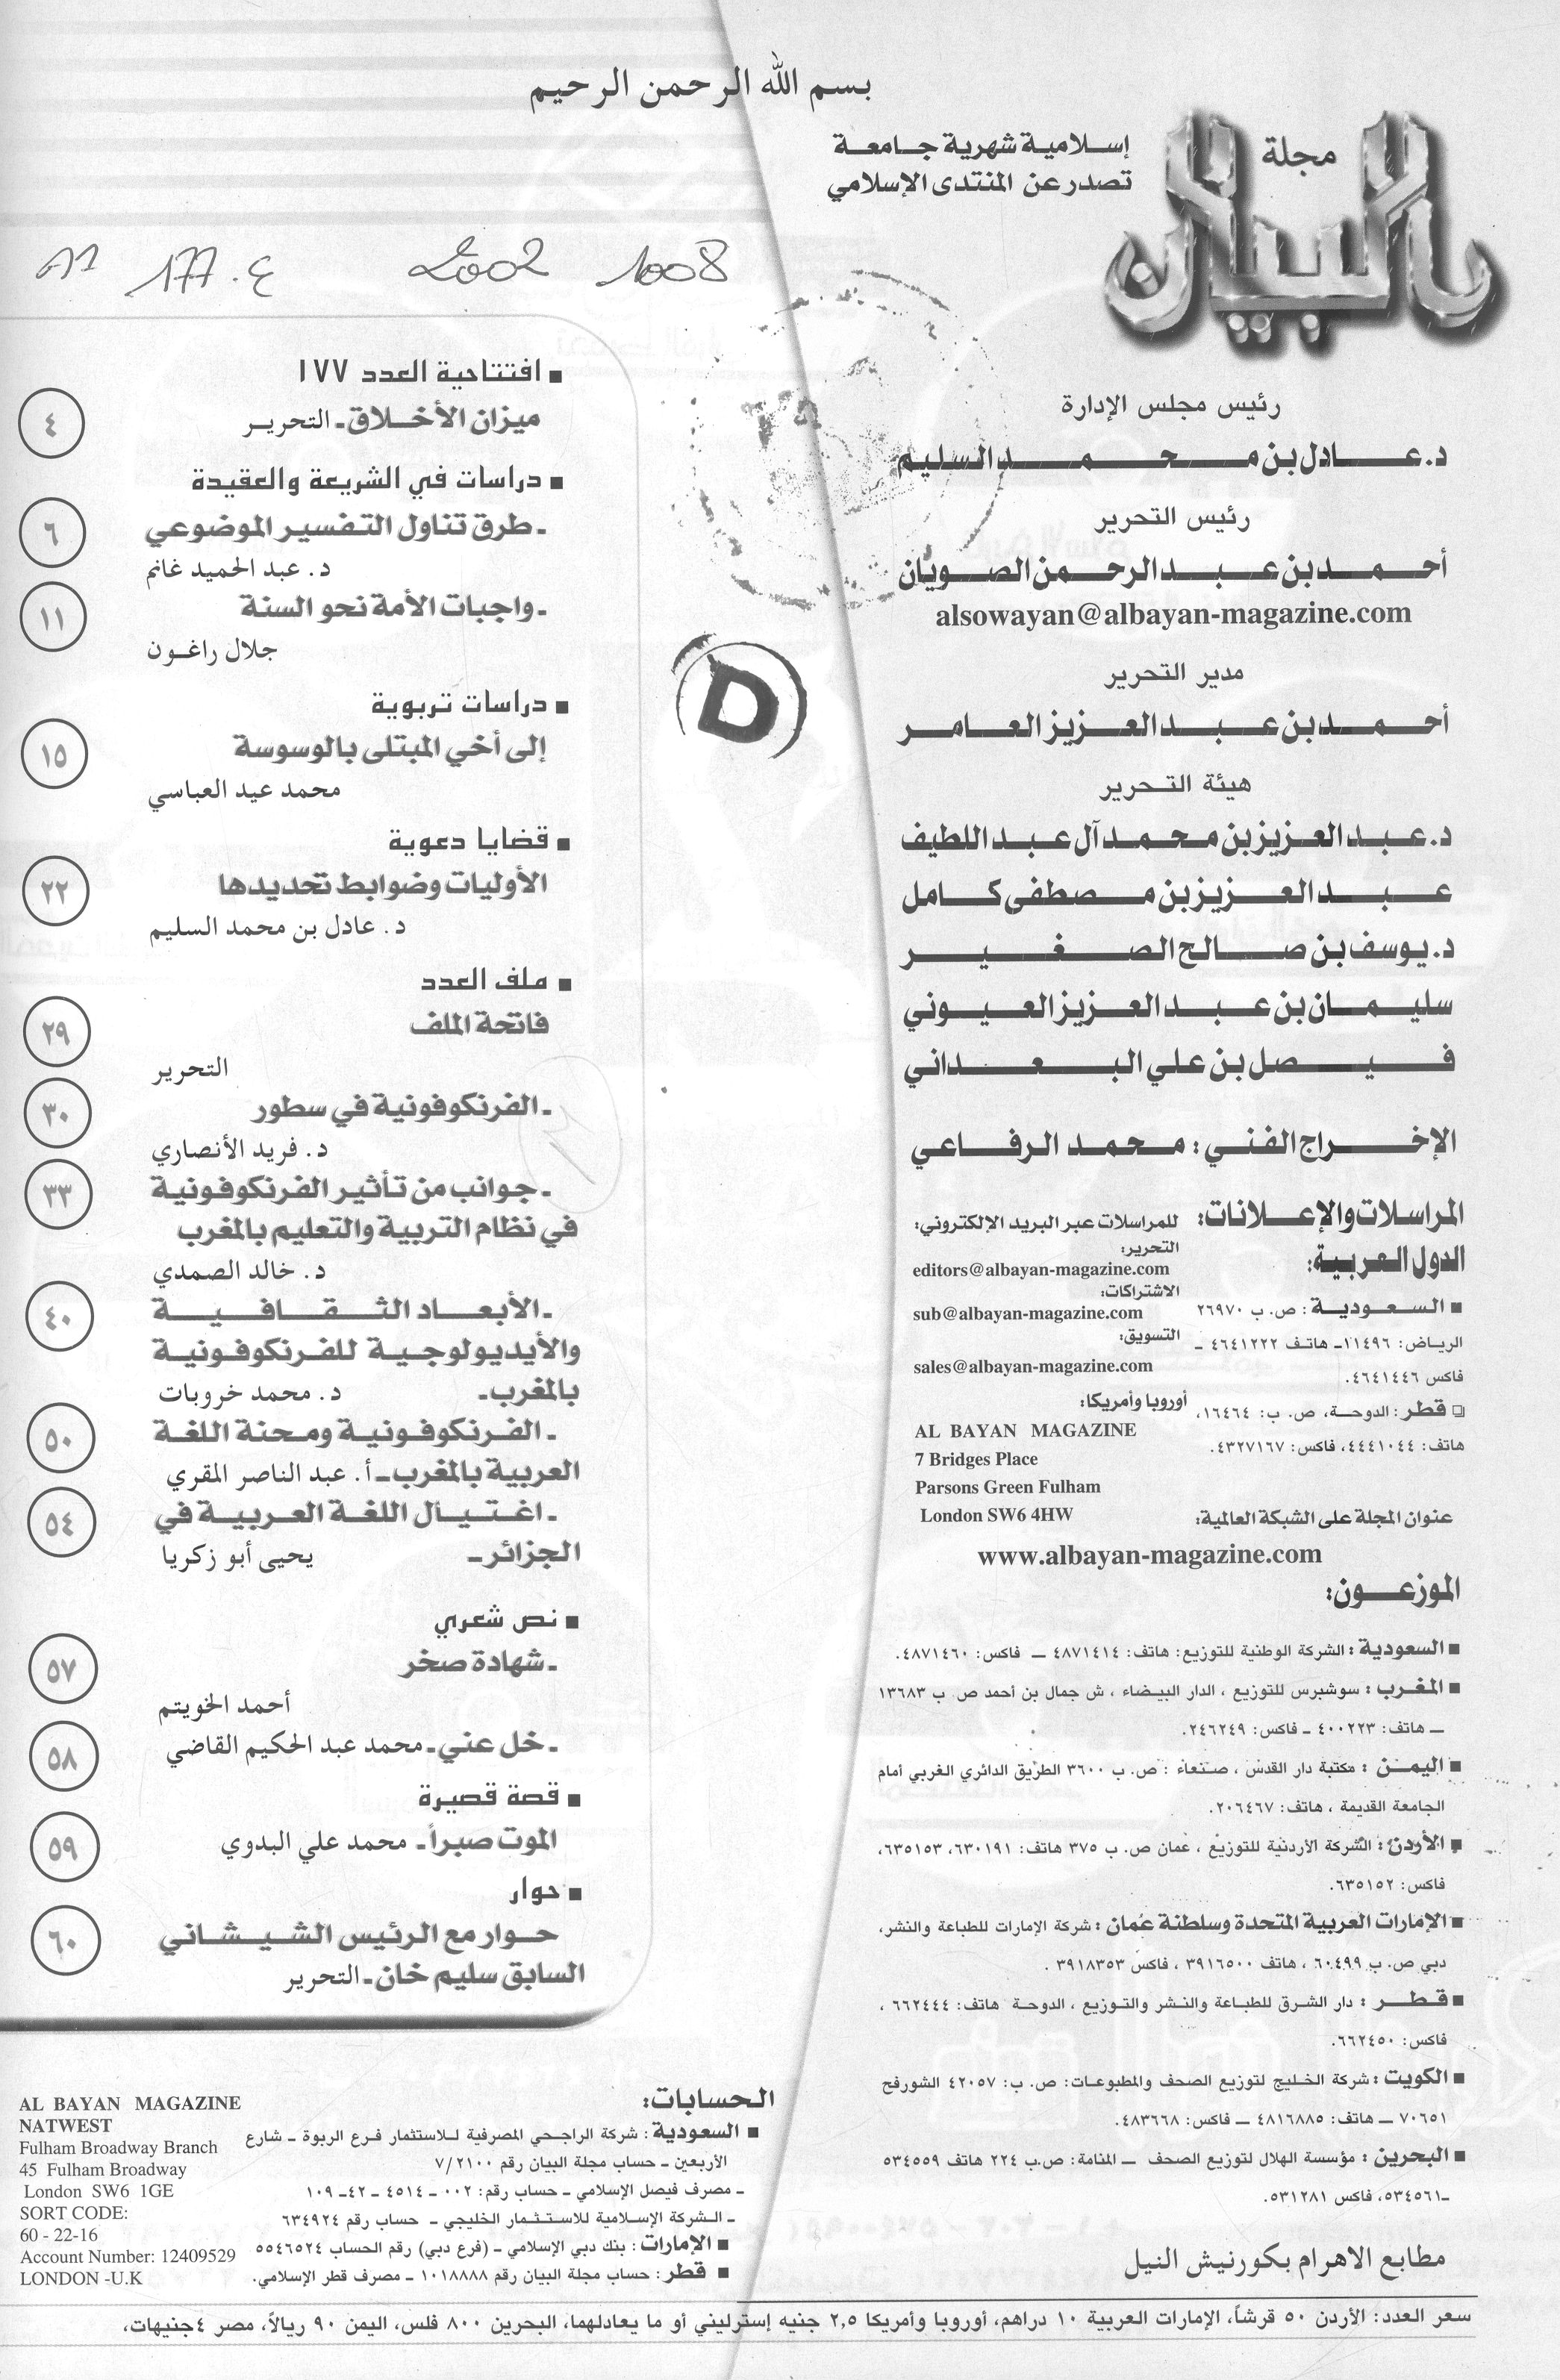 بسم الله الرحمن الرحيم
مجلة
البيان
إسلامية شهرية جامعة
تصدر عن المنتدى الإسلامي
رئيس مجلس الإدارة
د. عادل بن محمد السليم
رئيس التحرير
أحمد بن عبد الرحمن الصويان
alsowayan@albayan-magazine.com
مدير التحرير
أحمد بن عبد العزيز العامر
هيئة التحرير
د. عبد العزيز بن محمد آل عبد اللطيف
عبد العزيز بن مصطفى كامل
د. يوسف بن صالح الصغير
سليمان بن عبد العزيز العيوني
فيصل بن علي البعداني
الإخراج الفني : محمد الرفاعي
المراسلات والإعلانات:
الدول العربية:
■ السعودية : ص. ب ٢٦٩٧٠
الرياض: ١١٤٩٦ـ هاتف ٤٦٤١٢٢٢ ـ
فاكس ٤٦٤١٤٤٦.
❏ قطر : الدوحة، ص. ب: ١٦٤٦٤،
هاتف: ٤٤٤١٠٤٤، فاكس: ٤٣٢٧١٦٧.
للمراسلات عبر البريد الإلكتروني:
التحرير:
editors@albayan-magazine.com
الاشتراكات:
sub@albayan-magazine.com
التسويق:
sales@albayan-magazine.com
أوروبا وأمريكا:
AL BAYAN MAGAZINE
7 Bridges Place
Parsons Green Fulham
London SW6 4HW
عنوان المجلة على الشبكة العالمية:
www.albayan-magazine.com
الموزعون:
■ السعودية : الشركة الوطنية للتوزيع: هاتف: ٤٨٧١٤١٤ ــ فاكس: ٤٨٧١٤٦٠.
■ المغرب : سوشبرس للتوزيع ، الدار البيضاء ، ش جمال بن أحمد ص. ب ١٣٦٨٣
ــ هاتف: ٤٠٠٢٢٣ ـ فاكس: ٢٤٦٢٤٩.
■ اليمن : مكتبة دار القدس ، صنعاء : ص. ب ٣٦٠٠ الطريق الدائري الغربي أمام
الجامعة القديمة ، هاتف: ٢٠٦٤٦٧.
■ الأردن : الشركة الأردنية للتوزيع ، عمان ص. ب ٣٧٥ هاتف: ٦٣٠١٩١، ٦٣٥١٥٣،
فاكس: ٦٣٥١٥٢.
■ الإمارات العربية المتحدة وسلطنة عُمان : شركة الإمارات للطباعة والنشر،
دبي ص. ب ٦٠٤٩٩ ، هاتف ٣٩١٦٥٠٠ ، فاكس ٣٩١٨٣٥٣ .
■ قطر : دار الشرق للطباعة والنشر والتوزيع ، الدوحة هاتف: ٦٦٢٤٤٤ ،
فاكس: ٦٦٢٤٥٠.
■ الكويت : شركة الخليج لتوزيع الصحف والمطبوعات: ص. ب: ٤٢٠٥٧ الشورفح
٧٠٦٥١ ــ هاتف: ٤٨١٦٨٨٥ ــ فاكس: ٤٨٣٦٦٨.
■ البحرين : مؤسسة الهلال لتوزيع الصحف ــ المنامة: ص.ب ٢٢٤ هاتف ٥٣٤٥٥٩
ـ٥٣٤٥٦١، فاكس ٥٣١٢٨١.
مطابع الاهرام بكورنيش النيل
A1 177.ع 2002 1008
D
■ افتتاحية العدد ١٧٧
ميزان الأخلاق ـ التحرير
٤
■ دراسات في الشريعة والعقيدة
ـ طرق تناول التفسير الموضوعي
٦
د. عبد الحميد غانم
ـ واجبات الأمة نحو السنة
١١
جلال راغون
■ دراسات تربوية
إلى أخي المبتلى بالوسوسة
١٥
محمد عيد العباسي
■ قضايا دعوية
الأوليات وضوابط تحديدها
٢٢
د. عادل بن محمد السليم
■ ملف العدد
فاتحة الملف
٢٩
التحرير
ـ الفرنكوفونية في سطور
٣٠
د. فريد الأنصاري
ـ جوانب من تأثير الفرنكوفونية
٣٣
في نظام التربية والتعليم بالمغرب
د. خالد الصمدي
ـ الأبعاد الثقافية
٤٠
والأيديولوجية للفرنكوفونية
بالمغرب ـ د. محمد خروبات
ـ الفرنكوفونية ومحنة اللغة
٥٠
العربية بالمغرب ـ أ. عبد الناصر المقري
ـ اغتيال اللغة العربية في
٥٤
الجزائر ـ يحيى أبو زكريا
■ نص شعري
ـ شهادة صخر
٥٧
أحمد الخويتم
ـ خل عني ـ محمد عبد الحكيم القاضي
٥٨
■ قصة قصيرة
الموت صبراً ـ محمد علي البدوي
٥٩
■ حوار
حوار مع الرئيس الشيشاني
٦٠
السابق سليم خان ـ التحرير
الحسابات:
■ السعودية : شركة الراجحي المصرفية للاستثمار فرع الربوة ـ شارع
الأربعين ـ حساب مجلة البيان رقم ٧/٢١٠٠
ـ مصرف فيصل الإسلامي ـ حساب رقم: ٠٠٢ ـ ٤٥١٤ ـ ٤٢ـ ١٠٩
ـ الشركة الإسلامية للاستثمار الخليجي ـ حساب رقم ٦٣٤٩٢٤
■ الإمارات : بنك دبي الإسلامي ـ (فرع دبي) رقم الحساب ٥٥٤٦٥٢٤
■ قطر : حساب مجلة البيان رقم ١٠١٨٨٨٨ ـ مصرف قطر الإسلامي.
AL BAYAN MAGAZINE
NATWEST
Fulham Broadway Branch
45 Fulham Broadway
London SW6 1GE
SORT CODE:
60 - 22-16
Account Number: 12409529
LONDON -U.K
سعر العدد: الأردن ٥٠ قرشاً، الإمارات العربية ١٠ دراهم، أوروبا وأمريكا ٢,٥ جنيه إسترليني أو ما يعادلهما، البحرين ٨٠٠ فلس، اليمن ٩٠ ريالاً، مصر ٤جنيهات،